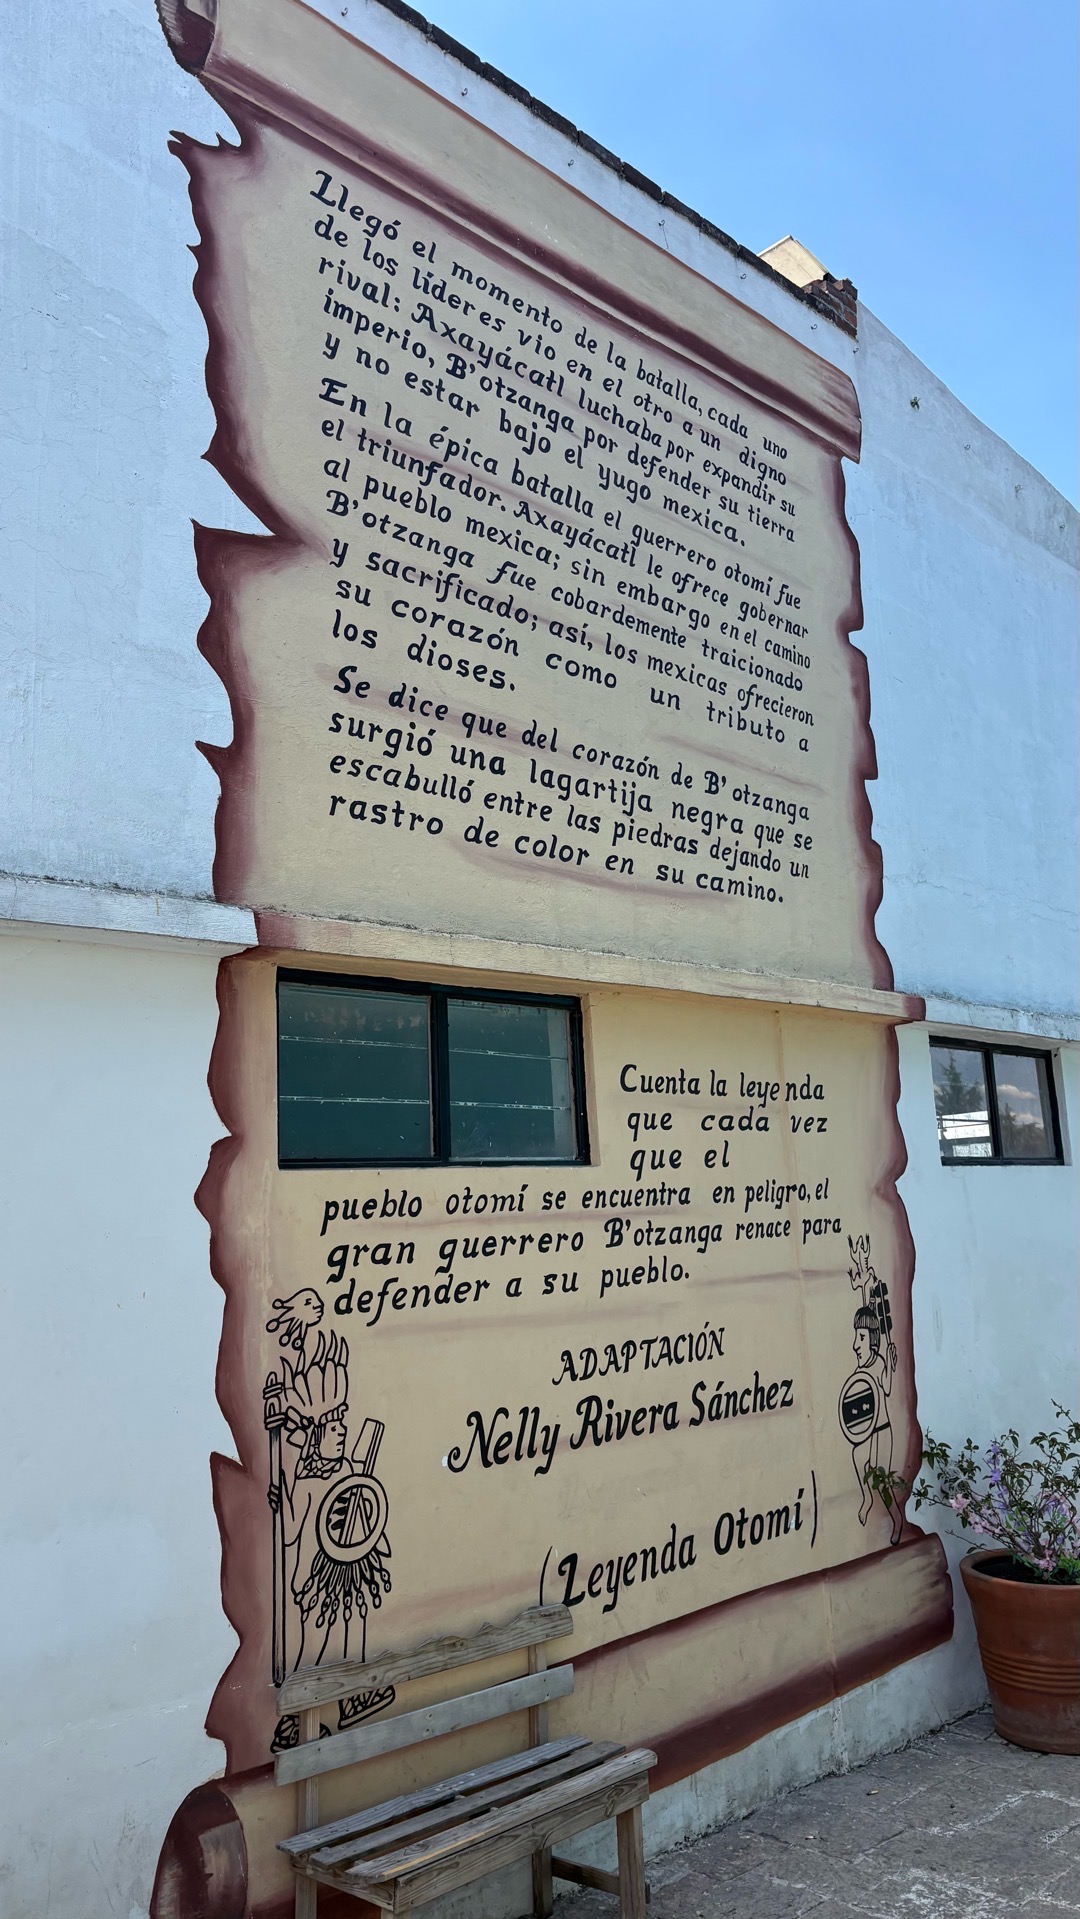 Llegó el momento de la batalla, cada uno
de los líderes vio en el otro a un digno
rival: Axayácatl luchaba por expandir su
imperio, B'otzanga por defender su tierra
y no estar bajo el yugo mexica.
En la épica batalla el guerrero otomí fue
el triunfador. Axayácatl le ofrece gobernar
al pueblo mexica; sin embargo en el camino
B'otzanga fue cobardemente traicionado
y sacrificado; así, los mexicas ofrecieron
su corazón como un tributo a
los dioses.
Se dice que del corazón de B'otzanga
surgió una lagartija negra que se
escabulló entre las piedras dejando un
rastro de color en su camino.
Cuenta la leyenda
que cada vez
que el
pueblo otomí se encuentra en peligro, el
gran guerrero B'otzanga renace para
defender a su pueblo.
ADAPTACIÓN
Nelly Rivera Sánchez
(Leyenda Otomí)